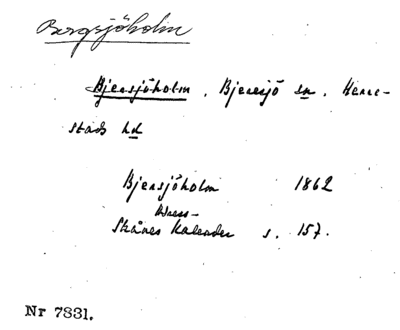 Bergsjöholm
Bjersjöholm, Bjeresjö sn, Herre-
stads hd
Bjersjöholm 1862
Skånes Kalender s. 157.
Nr 7831.